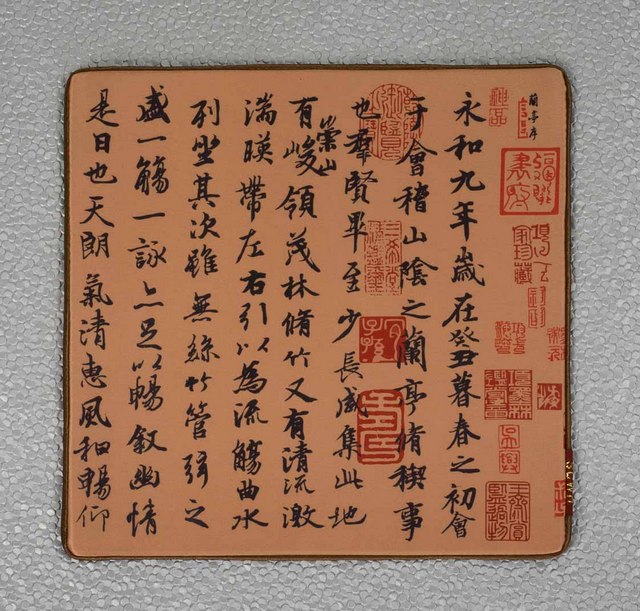 蘭亭序
神品
永和九年歲在癸丑暮春之初會
于會稽山陰之蘭亭脩稧事
也羣賢畢至少長咸集此地
有崇山峻領茂林脩竹又有清流激
湍暎帶左右引以為流觴曲水
列坐其次雖無絲竹管弦之
盛一觴一詠亦足以暢敘幽情
是日也天朗氣清惠風和暢仰